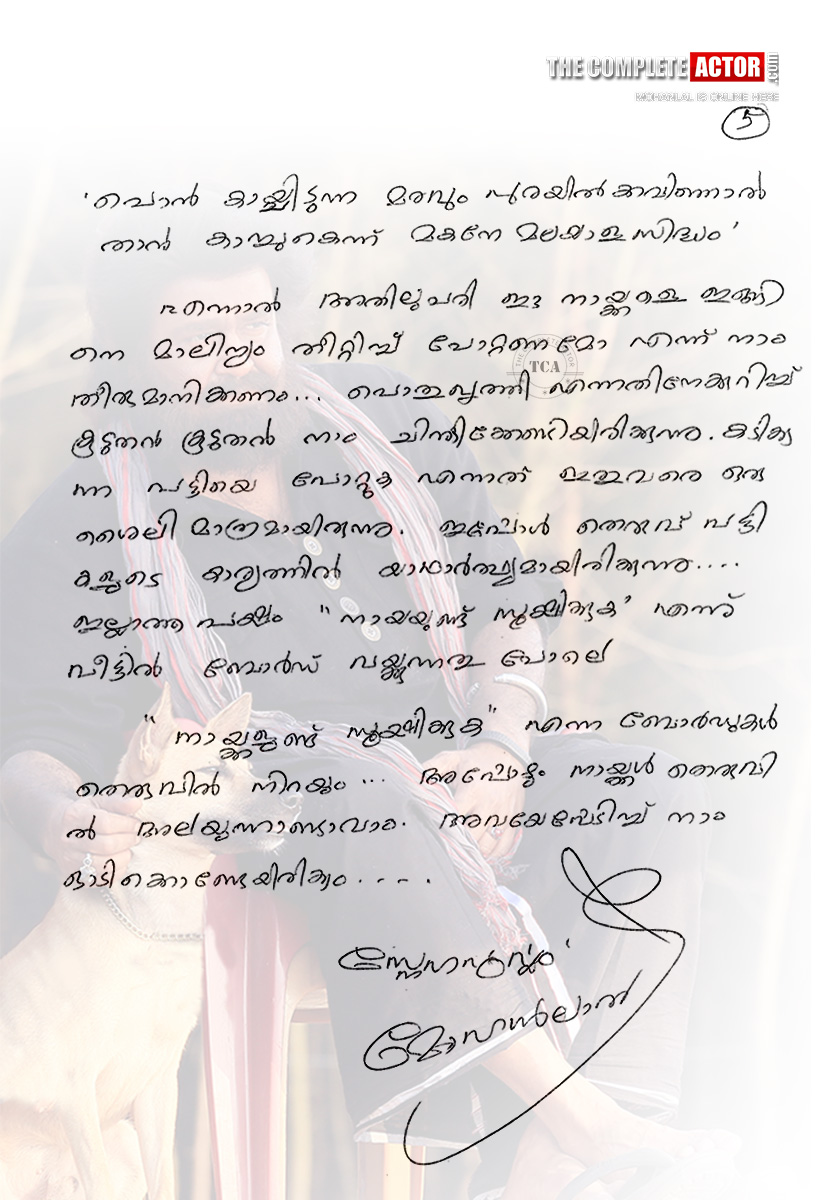 THE COMPLETE ACTOR .com
MOHANLAL IS ONLINE HERE
5
'പൊൻ കായ്ച്ചിടുന്ന മരവും പുരയിൽ കവിഞ്ഞാൽ
താൻ കാച്ചുകെന്ന് മകനേ മലയാള സിദ്ധം'
എന്നാൽ അതിലുപരി ഈ നായ്ക്കളെ ഇങ്ങി
നെ മാലിന്യം തീറ്റിച്ച് പോറ്റണമോ എന്ന് നാം
TCA
തീരുമാനിക്കണം... പൊതുവൃത്തി എന്നതിനേക്കുറിച്ച്
കൂടുതൽ കൂടുതൽ നാം ചിന്തിക്കേണ്ടിയിരിക്കുന്നു. കടിക്കു
ന്ന പട്ടിയെ പോറ്റുക എന്നത് ഇതുവരെ ഒരു
ശൈലി മാത്രമായിരുന്നു. ഇപ്പോൾ തെരുവ് പട്ടി
കളുടെ കാര്യത്തിൽ യാഥാർത്ഥ്യമായിരിക്കുന്നു....
ഇല്ലാത്ത പക്ഷം "നായയുണ്ട് സൂക്ഷിക്കുക" എന്ന്
വീട്ടിൽ ബോർഡ് വയ്ക്കുന്നതു പോലെ
"നായ്ക്കളുണ്ട് സൂക്ഷിക്കുക" എന്ന ബോർഡുകൾ
തെരുവിൽ നിറയും... അപ്പോഴും നായ്ക്കൾ തെരുവി
ൽ അലയുന്നുണ്ടാവാം. അവയേപ്പേടിച്ച് നാം
ഓടിക്കൊണ്ടേയിരിക്കും....
സ്നേഹപൂർവ്വം
മോഹൻലാൽ